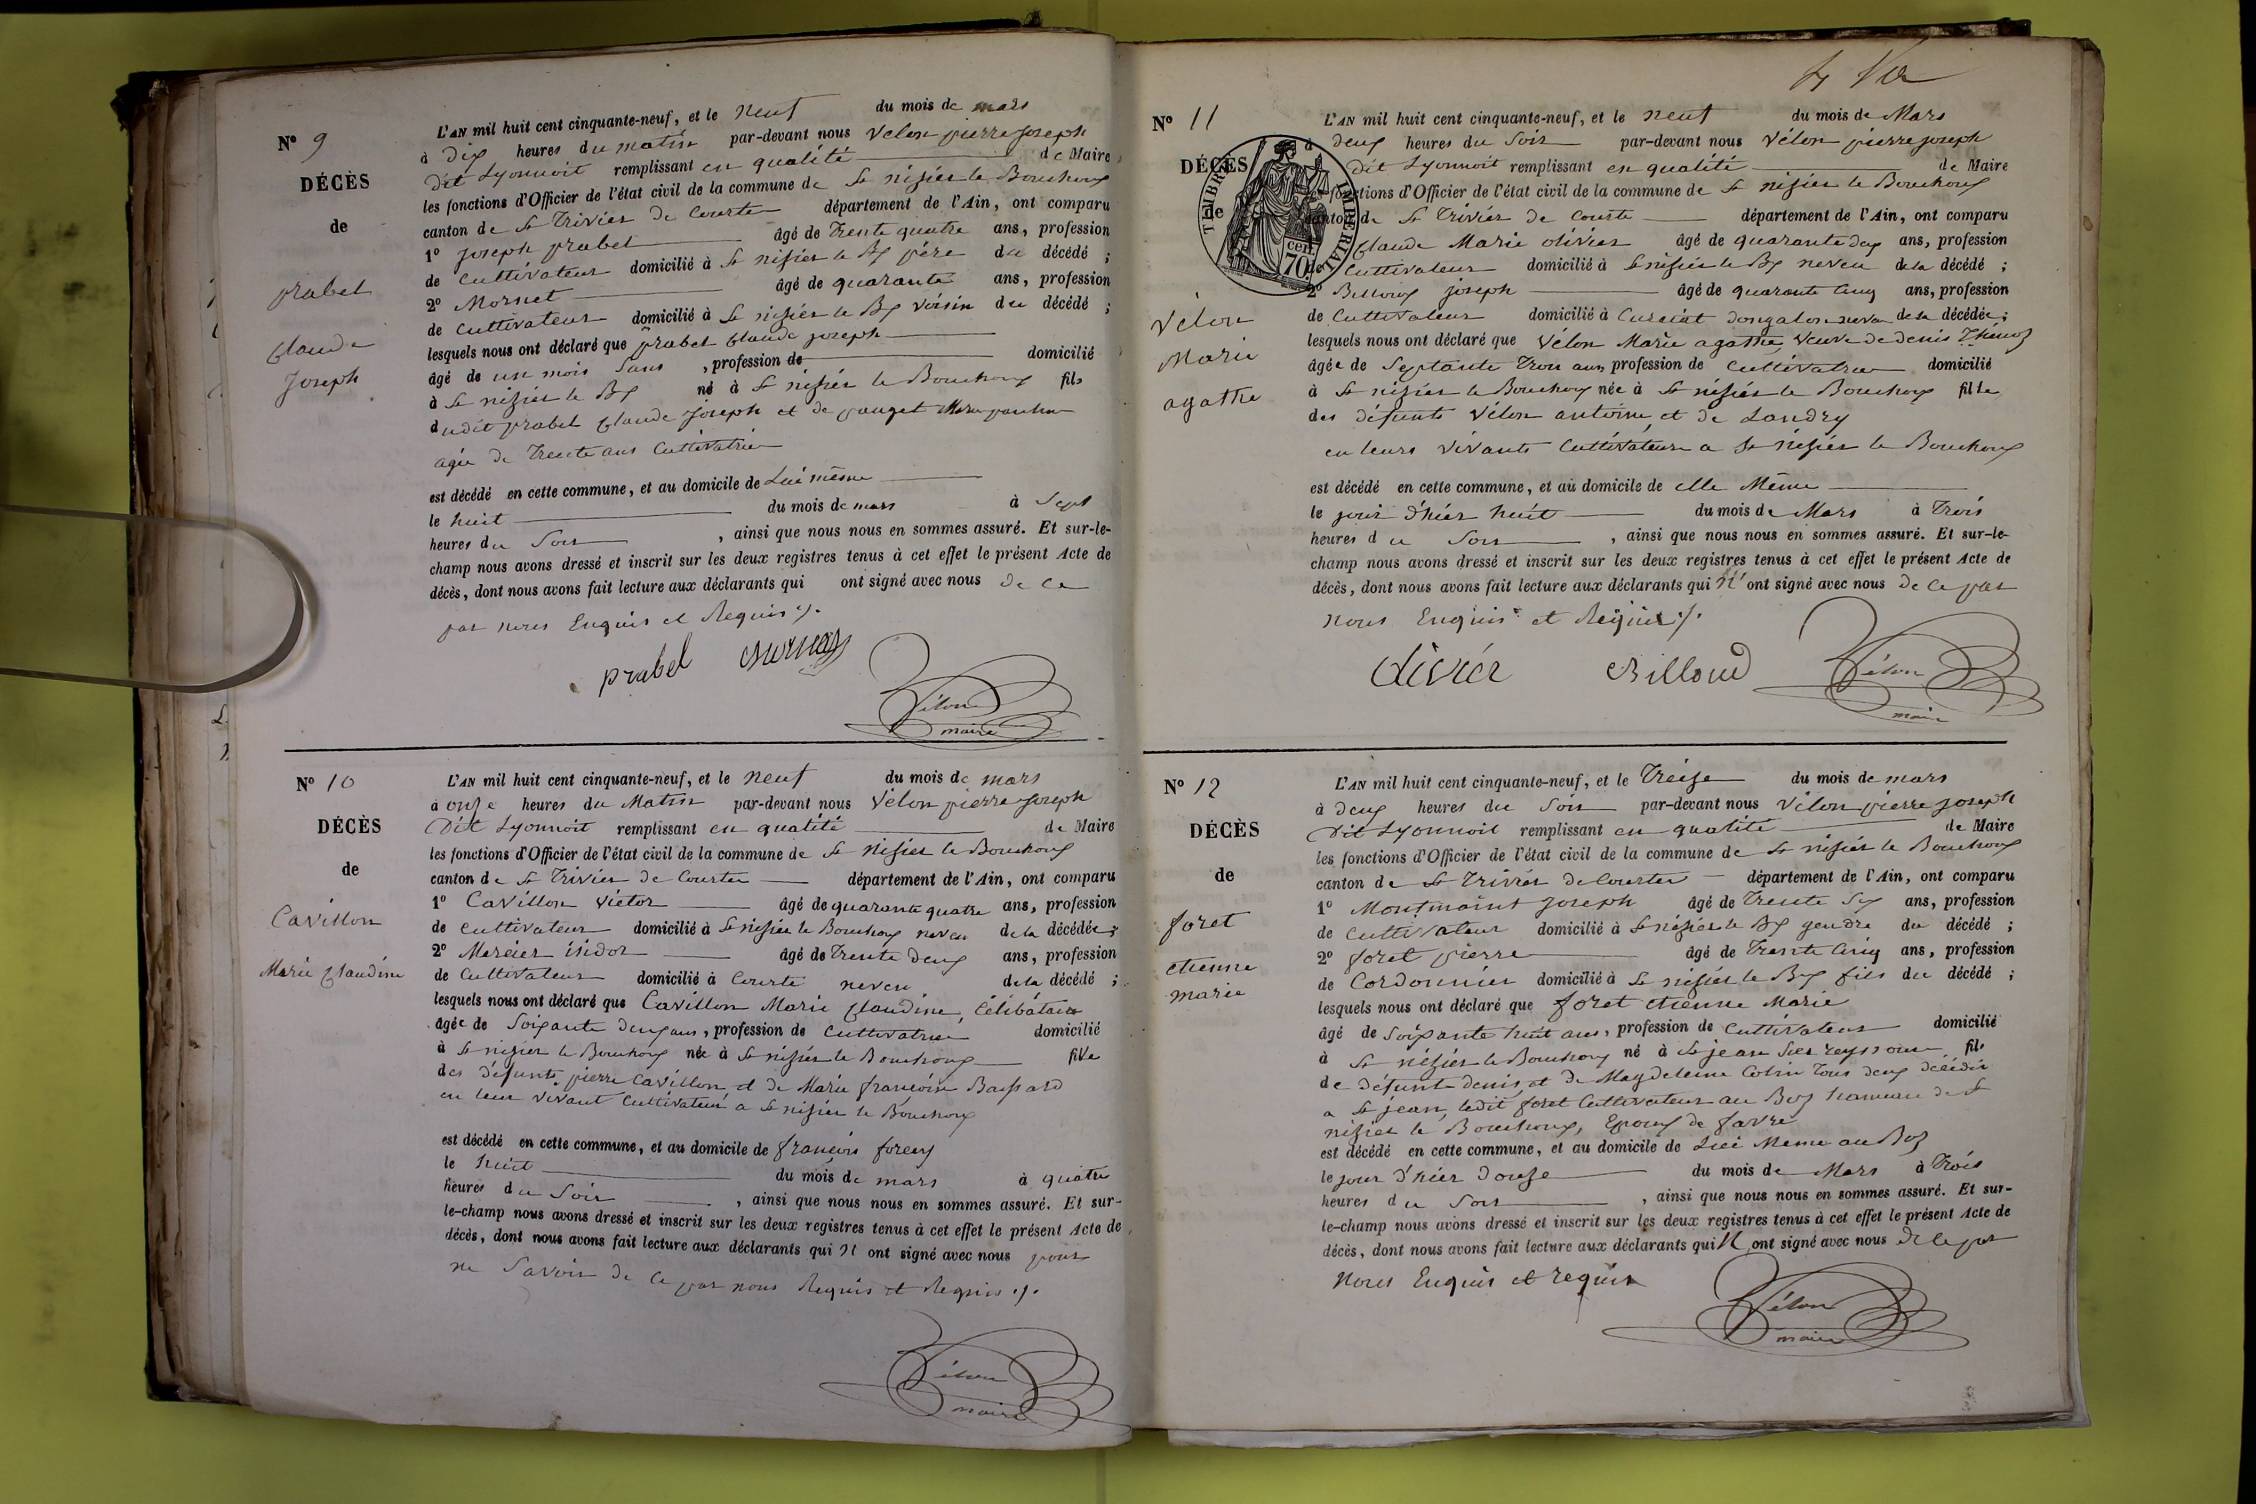 N° 9
DÉCÈS
de
prabel
Claude
Joseph
L'AN mil huit cent cinquante-neuf, et le neuf du mois de mars
à dix heures du matin par-devant nous Vélon pierre joseph
Dit Lyonnoit remplissant en qualité de Maire
les fonctions d'Officier de l'état civil de la commune de St nizier le Bouchoux
canton de St Trivier de Courte département de l'Ain, ont comparu
1° joseph prabel âgé de Trente quatre ans, profession
de Cultivateur domicilié à St nizier le Bx père du décédé ;
2° Mornet âgé de quarante ans, profession
de Cultivateur domicilié à St nizier le Bx voisin du décédé ;
lesquels nous ont déclaré que prabel Claude joseph
âgé de un mois Sans , profession de domicilié
à St nizier le Bx né à St nizier le Bouchoux fils
dudit prabel Claude Joseph et de pauget Marie
agée de Trente ans Cultivatrice
est décédé en cette commune, et au domicile de Lui même
le huit du mois de mars à Sept
heures du Soir , ainsi que nous nous en sommes assuré. Et sur-le-
champ nous avons dressé et inscrit sur les deux registres tenus à cet effet le présent Acte de
décès, dont nous avons fait lecture aux déclarants qui ont signé avec nous de ce
par nous Enquis et Requis ./.
prabel
Vélon
maire
N° 10
DÉCÈS
de
Cavillon
Marie Claudine
L'AN mil huit cent cinquante-neuf, et le neuf du mois de mars
à onze heures du Matin par-devant nous Vélon pierre joseph
Dit Lyonnoit remplissant en qualité de Maire
les fonctions d'Officier de l'état civil de la commune de St nizier le Bouchoux
canton de St Trivier de Courte département de l'Ain, ont comparu
1° Cavillon Victor âgé de quarante quatre ans, profession
de Cultivateur domicilié à St nizier le Bouchoux neveu de la décédée ;
2° Mercier isidor âgé de Trente deux ans, profession
de Cultivateur domicilié à Courte neveu de la décédé ;
lesquels nous ont déclaré que Cavillon Marie Claudine, Célibataire
âgée de Soixante deux ans, profession de Cultivatrice domicilié
à St nizier le Bouchoux née à St nizier le Bouchoux fille
des défunts pierre Cavillon et de Marie françoise Bassard
en leur vivant Cultivateur a St nizier le Bouchoux
est décédé en cette commune, et au domicile de françois forey
le huit du mois de mars à quatre
heures du Soir , ainsi que nous nous en sommes assuré. Et sur-
le-champ nous avons dressé et inscrit sur les deux registres tenus à cet effet le présent Acte de
décès, dont nous avons fait lecture aux déclarants qui n ont signé avec nous pour
ne Savoir de ce par nous Requis et Requis ./.
Vélon
maire
N° 11
DÉCÈS
de
Vélon
Marie
agathe
TIMBRE IMPERIAL
70 cen
L'AN mil huit cent cinquante-neuf, et le neuf du mois de Mars
à deux heures du Soir par-devant nous Vélon pierre joseph
Dit Lyonnoit remplissant en qualité de Maire
les fonctions d'Officier de l'état civil de la commune de St nizier le Bouchoux
canton de St Trivier de Courte département de l'Ain, ont comparu
Claude Marie olivier âgé de quarante deux ans, profession
de Cultivateur domicilié à St nizier le Bx neveu de la décédé ;
2° Billoux joseph âgé de quarante Cinq ans, profession
de Cultivateur domicilié à Curciat dongalon neveu de la décédée ;
lesquels nous ont déclaré que Vélon Marie agathe, Veuve de denis Thénoz
âgée de Septante Trois ans, profession de Cultivatrice domicilié
à St nizier le Bouchoux née à St nizier le Bouchoux fille
des défunts Vélon antoine, et de Landry
en leurs vivants Cultivateurs a St nizier le Bouchoux
est décédé en cette commune, et au domicile de elle Même
le jour d'hier huit du mois de Mars à Trois
heures du Soir , ainsi que nous nous en sommes assuré. Et sur-le-
champ nous avons dressé et inscrit sur les deux registres tenus à cet effet le présent Acte de
décès, dont nous avons fait lecture aux déclarants qui N' ont signé avec nous de ce par
nous Enquis et Requis ./.
Olivier Billoud Vélon
maire
N° 12
DÉCÈS
de
foret
etienne
marie
L'AN mil huit cent cinquante-neuf, et le Treize du mois de mars
à deux heures du Soir par-devant nous Vélon pierre joseph
Dit Lyonnoit remplissant en qualité de Maire
les fonctions d'Officier de l'état civil de la commune de St nizier le Bouchoux
canton de St Trivier de Courtes département de l'Ain, ont comparu
1° Montmaint Joseph âgé de Trente Six ans, profession
de Cultivateur domicilié à St nizier le Bx gendre du décédé ;
2° foret pierre âgé de Trente Cinq ans, profession
de Cordonnier domicilié à St nizier le Bx fils du décédé ;
lesquels nous ont déclaré que foret etienne Marie
âgé de Soixante huit ans, profession de Cultivateur domicilié
à St nizier le Bouchoux né à St jean Sur reyssouse fils
de défunts denis, et de Magdeleine Colin Tous deux décédés
a St jean, ledit foret Cultivateur au Boz hameau de St
nizier le Bouchoux, Epoux de favre
est décédé en cette commune, et au domicile de Lui Meme au Boz
le jour d'hier Douze du mois de Mars à Trois
heures du Soir , ainsi que nous nous en sommes assuré. Et sur-
le-champ nous avons dressé et inscrit sur les deux registres tenus à cet effet le présent Acte de
décès, dont nous avons fait lecture aux déclarants qui N ont signé avec nous de ce par
nous Enquis et requis
Vélon
maire